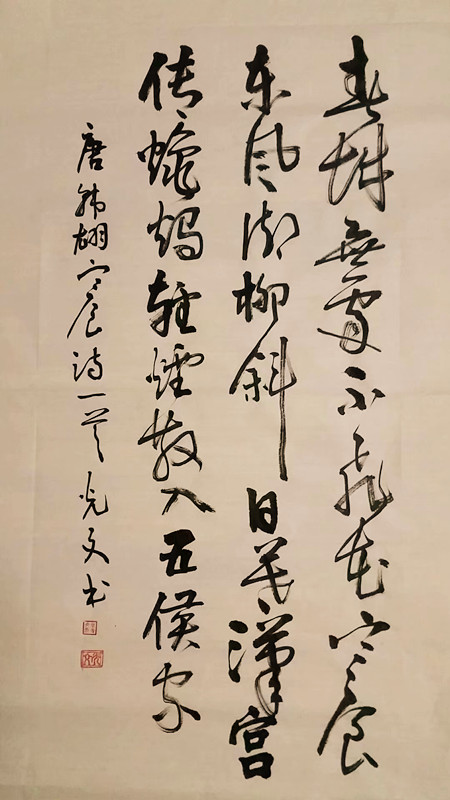 春城無處不飛花寒食
东风御柳斜日暮漢宫
传蠟燭轻煙散入五侯家
唐韩翃寒食诗一首 光文书